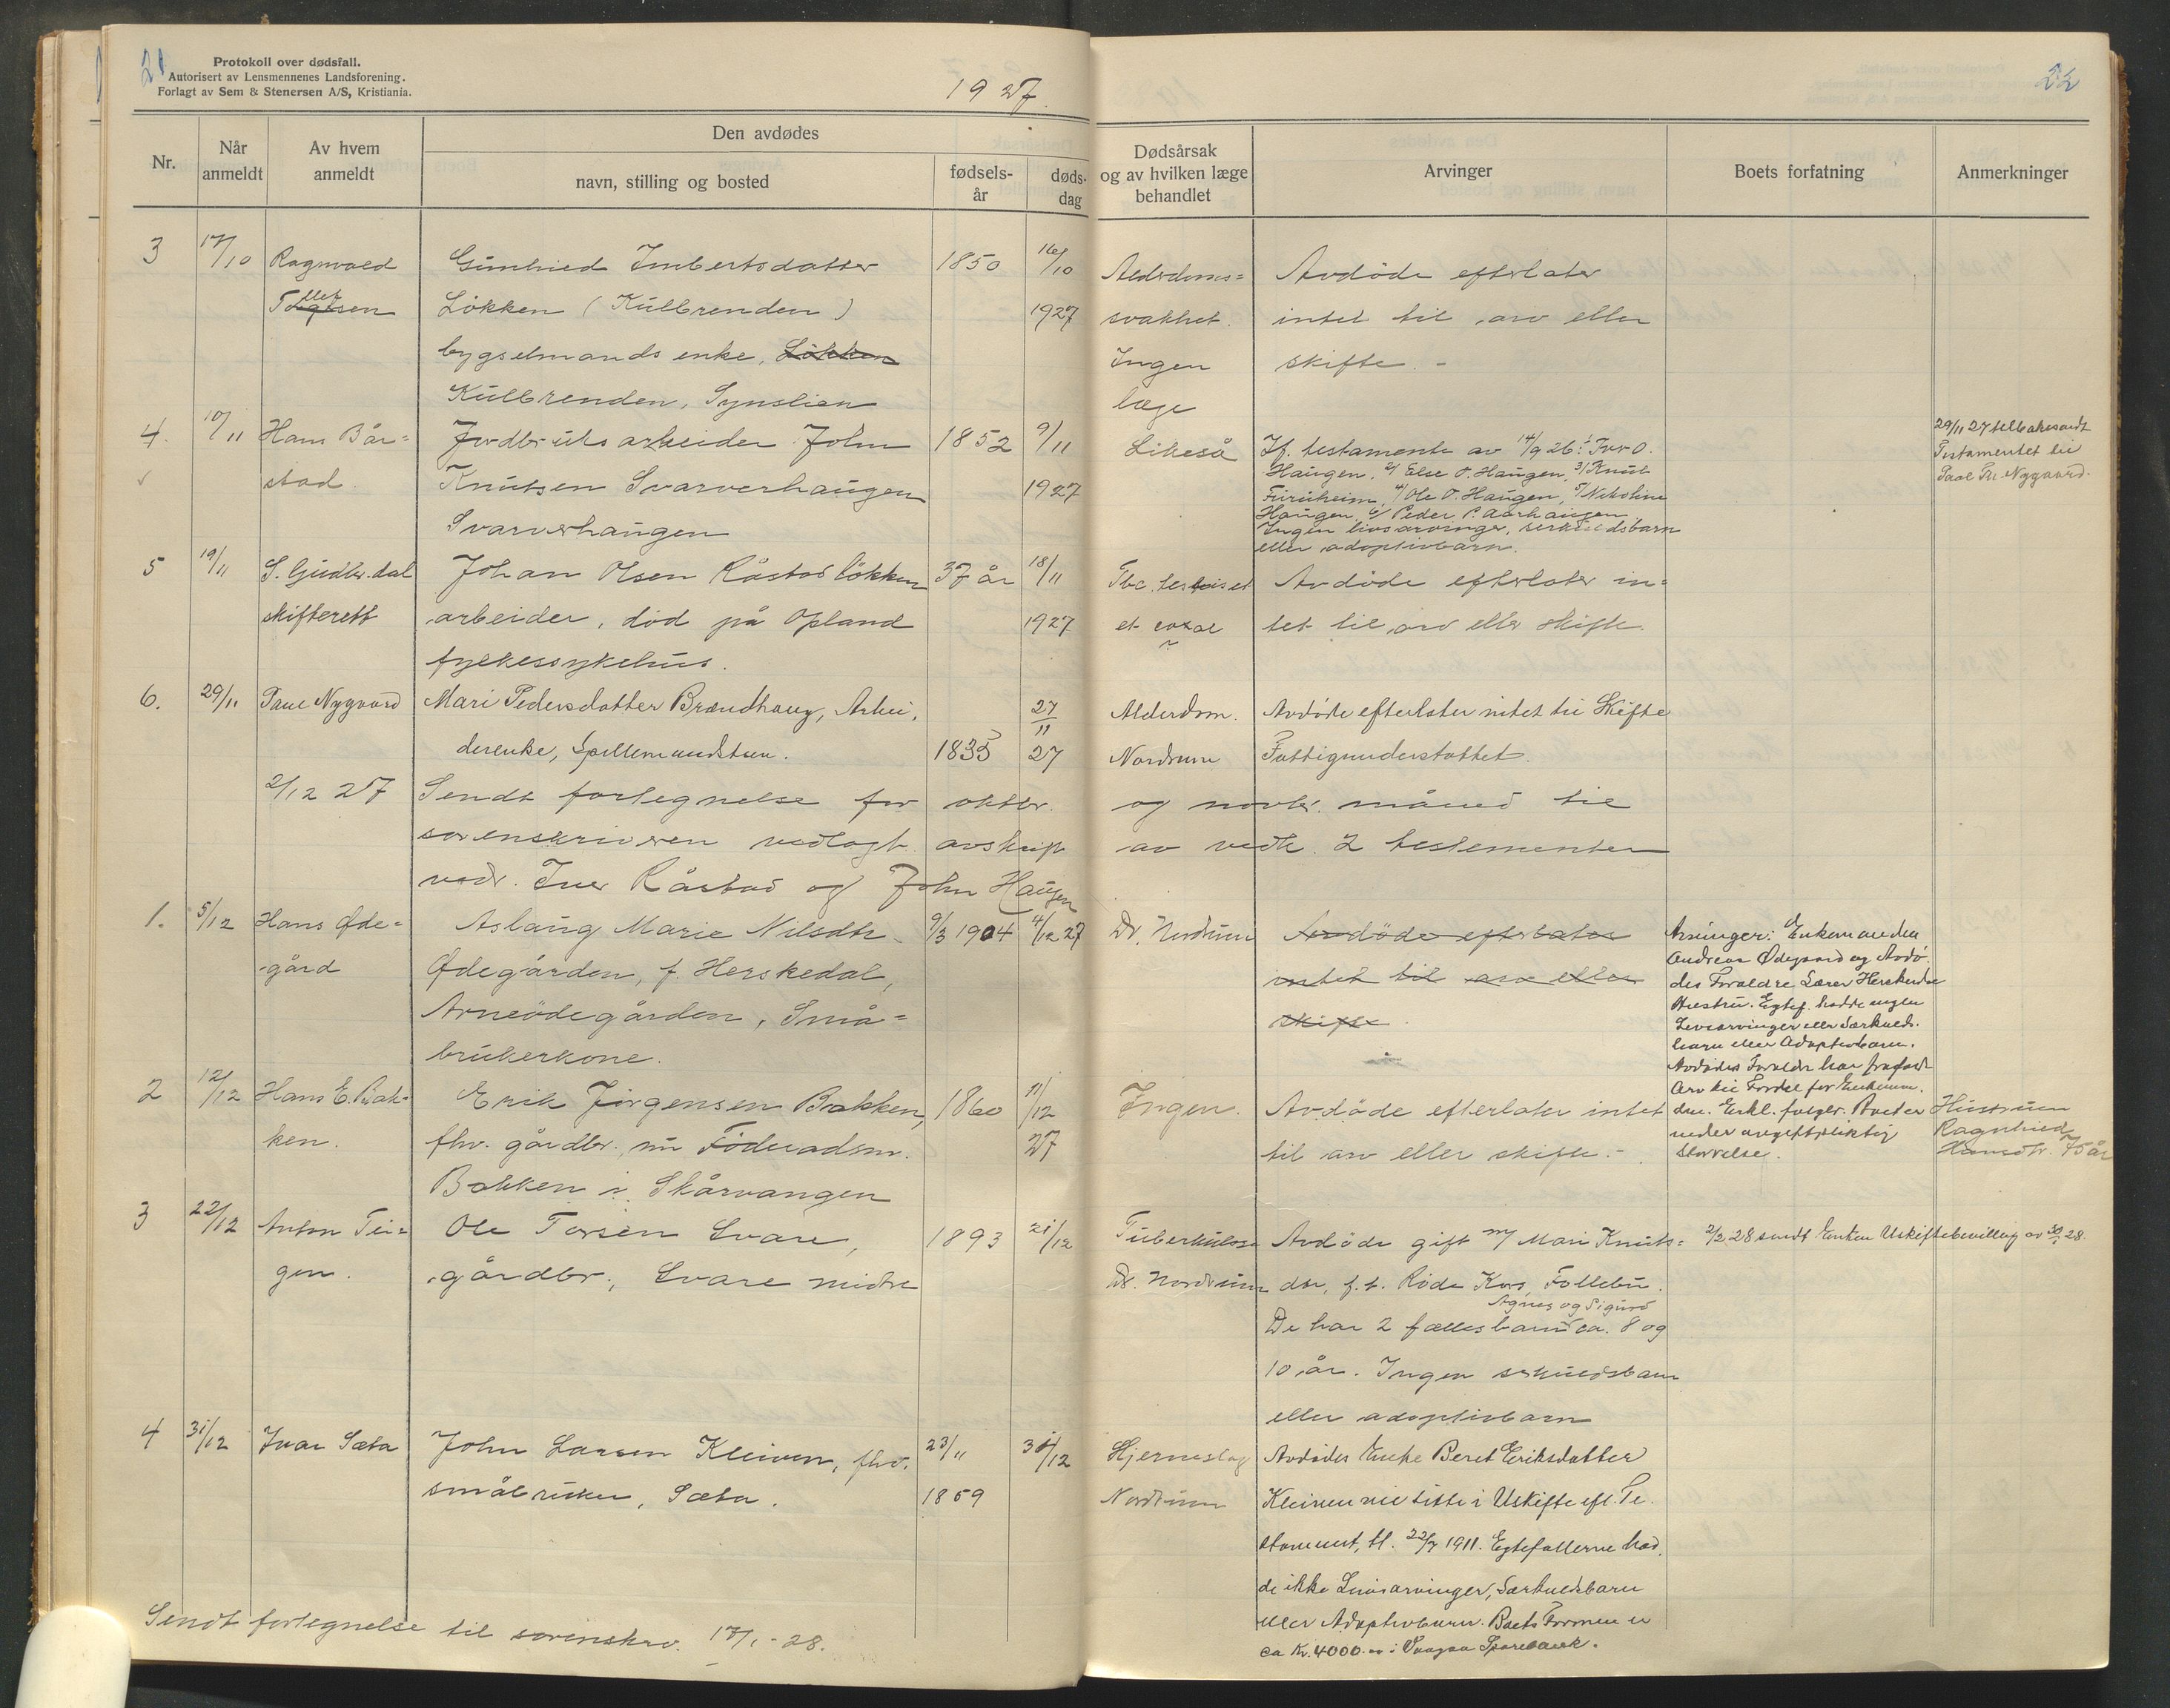 21
Protokoll over dødsfall.
Autorisert av Lensmennenes Landsforening.
Forlagt av Sem & Stenersen A/S, Kristiania.
1927.
22
Nr.
Når anmeldt
Av hvem anmeldt
Den avdødes
navn, stilling og bosted
fødsels-år
døds-dag
Dødsårsak og av hvilken læge behandlet
Arvinger
Boets forfatning
Anmerkninger
3 17/10 Ragnvald Gunhild Imbertsdatter 1850 16/10 Alderdoms= Avdöde efterlater
Lökken (Kulbrenden) 1927 svakhet. intet til arv eller
bygselmands enke, Lökken Ingen skifte. -
Kulbrenden, Synslien læge
4. 10/11 Hans Bår= Jordbruksarbeider John 1852 9/11 Likeså Jf. testamente av 14/9 26: 1/ Iver O.
stad Knutsen Svarverhaugen 1927 Haugen, 2/ Else O. Haugen, 3/ Knut
Svarverhaugen Furuheim, 4/ Ole O. Haugen, 5/ Nikoline
Haugen, 6/ Peder P. Aarhaugen
Ingen livsarvinger, særkuldsbarn
eller adoptivbarn.
29/11 27 tilbakesendt
Testamentet til
Paal Nygaard.
5 19/11 S. Gudbr.dal Johan Olsen Råstad lökken 37 år 18/11 Tbc. Avdöde efterlater in=
skifterett arbeider, död på Opland 1927 et coxae tet til arv eller skifte.
fylkessykehus.
6. 29/11 Paul Nygaard Mari Pedersdatter Brændhaug, Arbei, 27/11 Alderdom. Avdöde efterlater intet til Skifte
derenke, 1835 27 Nordrum Fattigunderstøttet.
2/12 27 Sendt fortegnelse for oktbr. og novbr. måned til
sorenskriveren vedlagt avskrift av vedk. 2 testementer
vedr. Iver Råstad og John Haugen
1. 5/12 Hans Øde= Aslaug Marie Nilsdtr. 9/3 1904 4/12 27 Dr. Nordrum Avdöde efterlater
gård Ødegården, f. Herskedal, intet til arv eller
Arneödegården, Små= skifte
brukerkone.
Arvinger: Enkemanden
Andreas Ødegaard og Avdö.
des Foreldre Lærer Herskedal
Hustru. Egtef. hadde ingen
Livsarvinger eller Særkulds.
barn eller Adoptivbarn.
Avdödes Foreldre har frafaldt
Arv til Fordel for Enkeman.
den. Erkl. følger. Boet er
under avgiftspliktig
Störrelse.
2 12/12 Hans E. Bak= Erik Jörgensen Bakken, 1860 11/12 Ingen. Avdöde efterlater intet
ken. fhv. gårdbr., nu Föderadsm. 27 til arv eller skifte. -
Bakken i Skårvangen
Hustruen
Ragnhild
Hansdtr. 75 år
3 22/12 Anton Tei= Ole Torsen Svare, 1893 21/12 Tuberkulose Avdöde gift m/ Mari Knuts=
gen. gårdbr., Svare midtre Dr. Nordrum dtr, f. t. Röde Kors, Follebu.
Agnes og Sigurd
De har 2 fællesbarn ca. 8 og
10 år. Ingen særkuldsbarn
eller adoptivbarn
2/2 28 sendt Enken Uskiftebevilling av 30/1 28.
4 31/12 Ivar Sæta John Larsen Kleiven, fhv. 23/11 31/12 Hjerneslag Avdödes Enke Beret Eriksdatter
småbruker, Sæta. 1859 Nordrum Kleiven vil sitte i Uskifte efl. Te.
stament, tl. 22/7 1911. Egtefællerne had.
de ikke Livsarvinger, Særkuldsbarn
eller Adoptivbarn. Boets Formue er
ca Kr. 4000.00 i Vaagaa Sparebank.
Sendt fortegnelse til sorenskrv. 17/1-28.